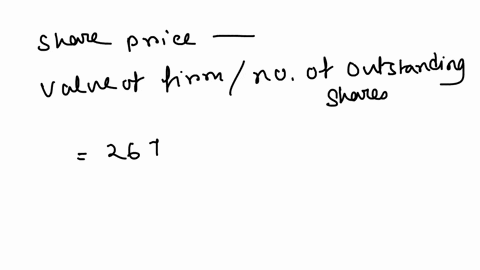 Share price —
Value of firm / no. of outstanding
shares
= 267